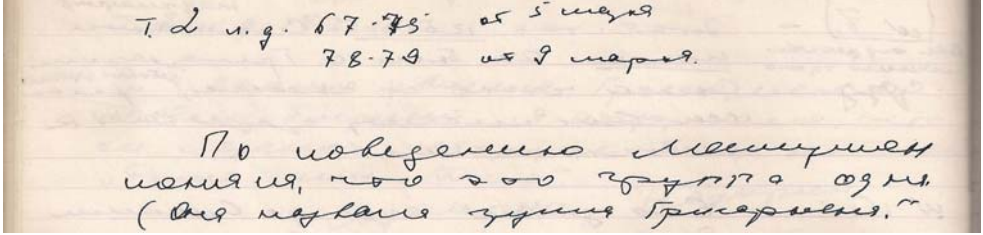 Т. 2 л.д. 67-75 от 5 марта
78-79 от 9 марта.
По поведению
поняла, что это группа одна.
(Она назвала группа Григоряна."